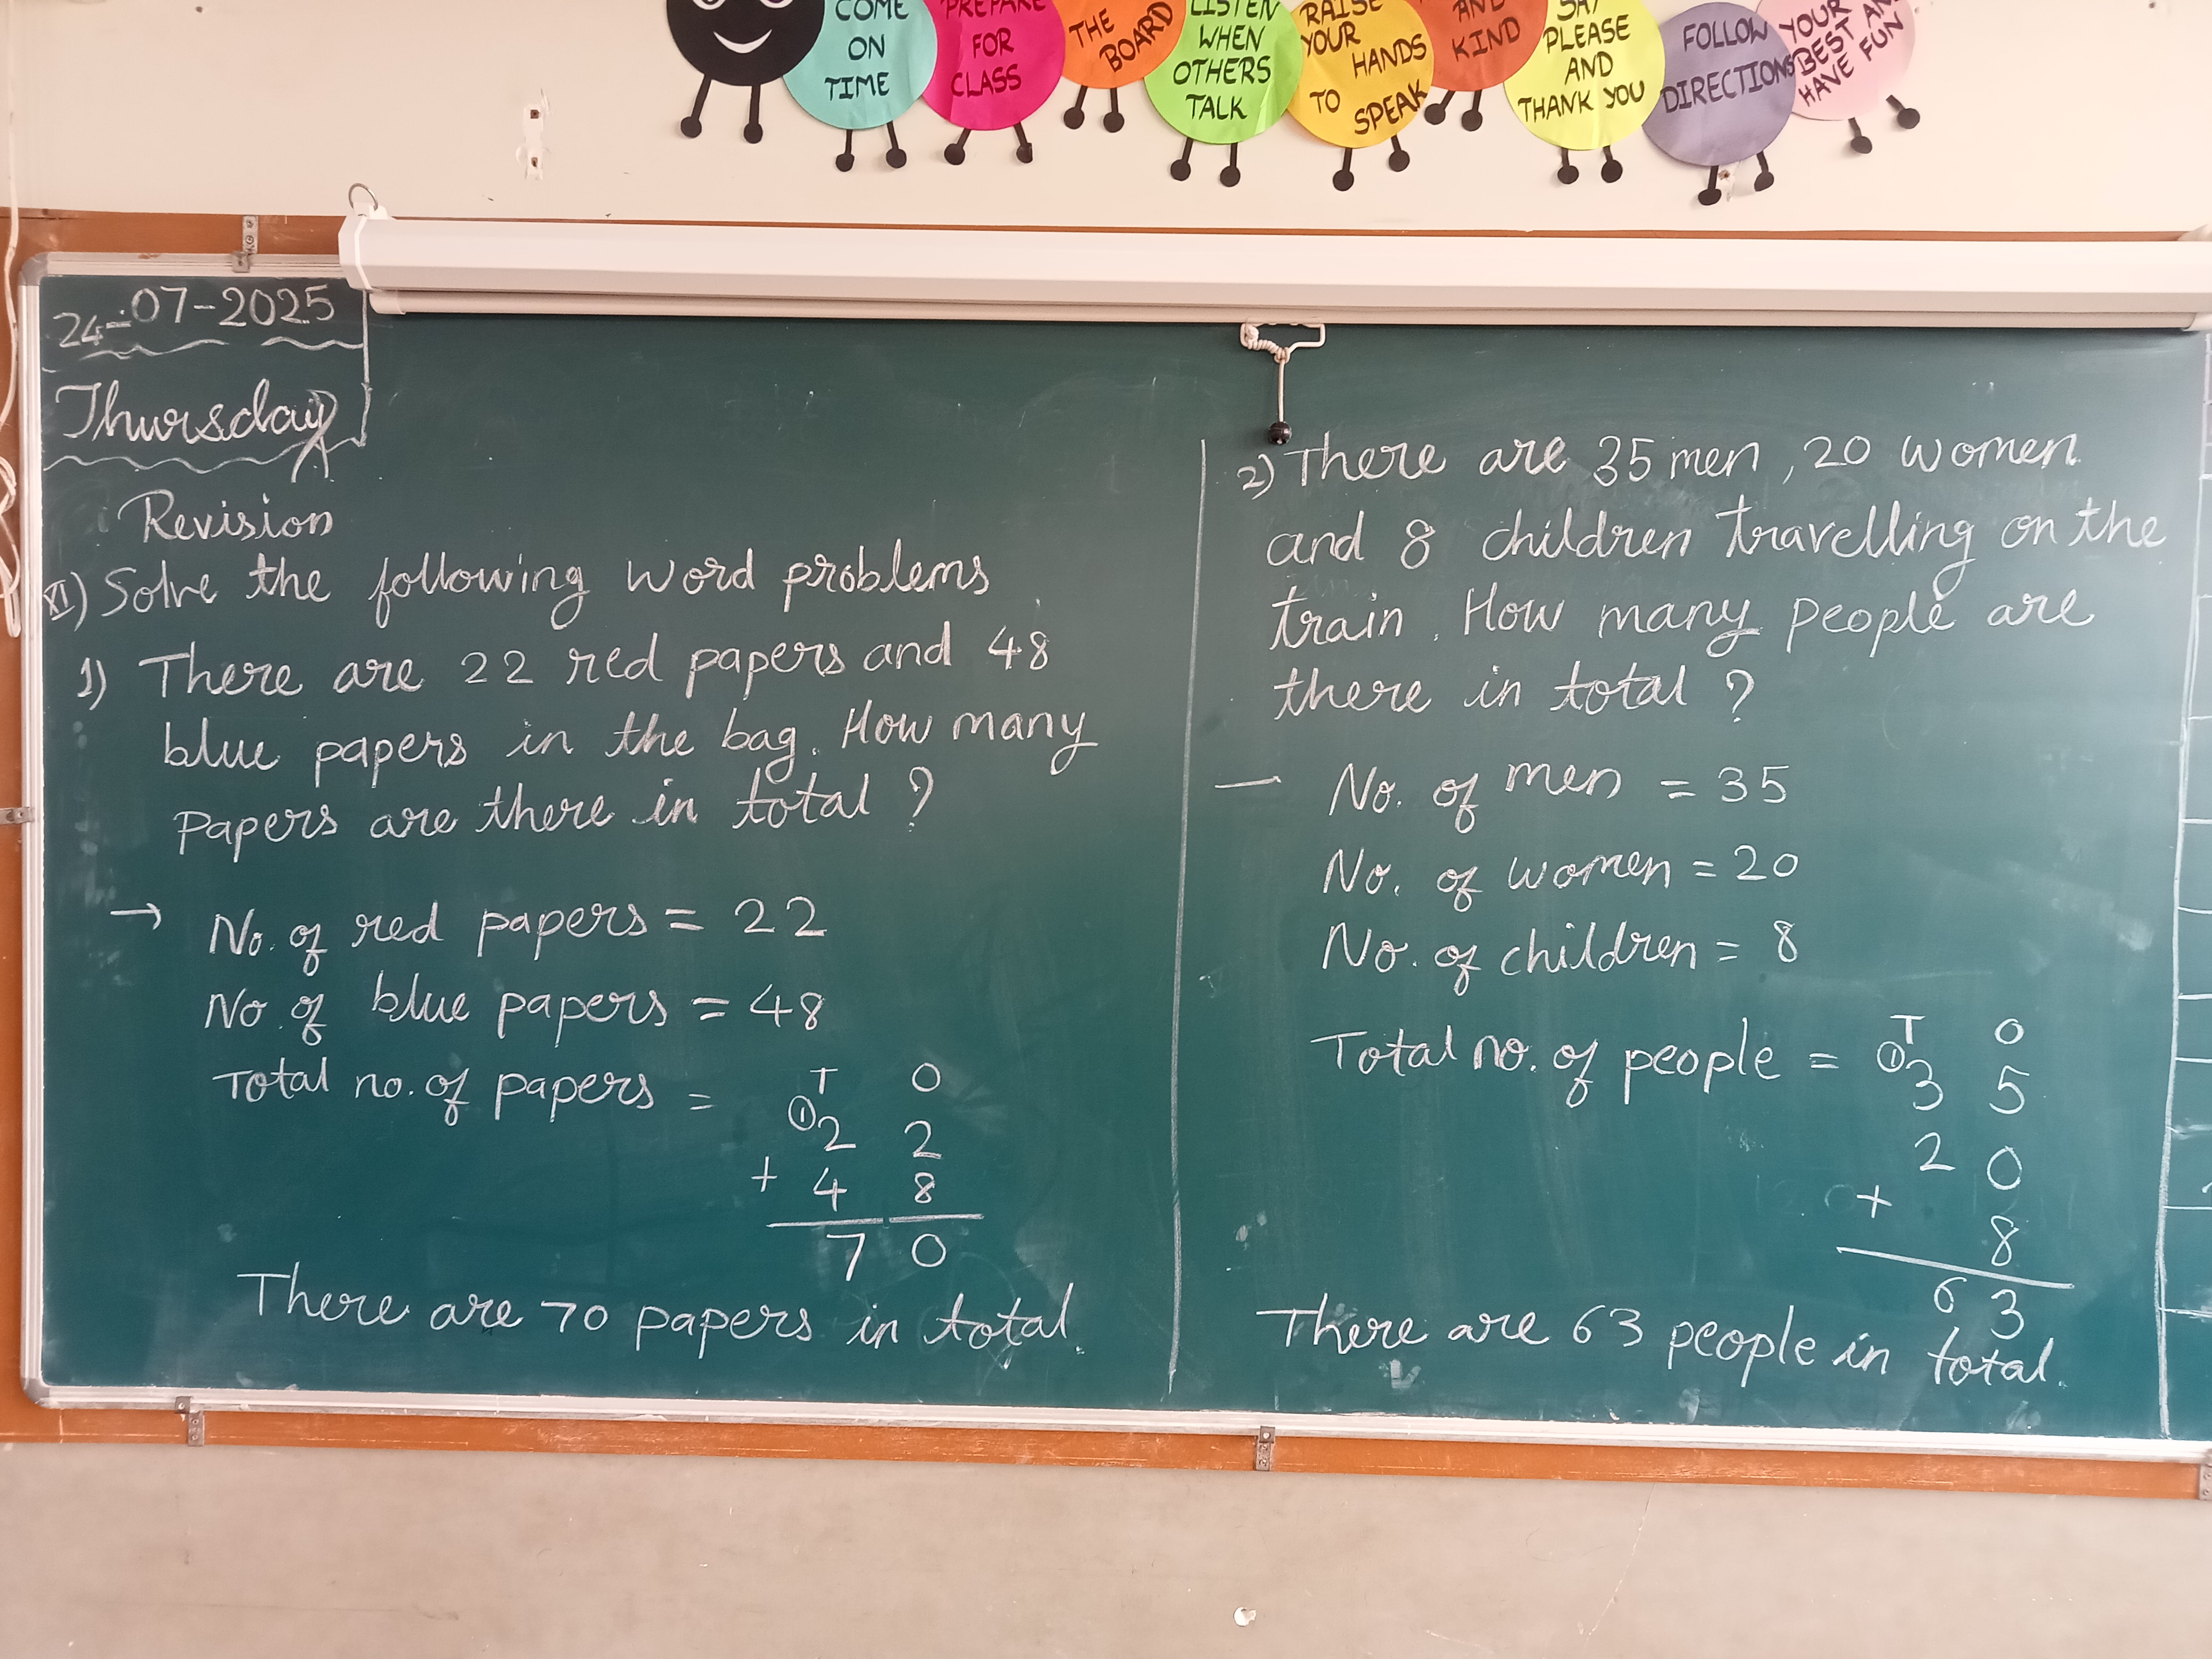 COME
ON
TIME
PREPARE
FOR
CLASS
THE
BOARD
LISTEN
WHEN
OTHERS
TALK
RAISE
YOUR
HANDS
TO
SPEAK
AND
KIND
SAY
PLEASE
AND
THANK YOU
FOLLOW
DIRECTIONS
YOUR
BEST AND
HAVE FUN
24-07-2025
Thursday
Revision
XI) Solve the following word problems
1) There are 22 red papers and 48
blue papers in the bag. How many
papers are there in total ?
→ No. of red papers = 22
No. of blue papers = 48
Total no. of papers =
T O
① 2 2
+ 4 8
7 0
There are 70 papers in total.
2) There are 35 men, 20 women
and 8 children travelling on the
train. How many people are
there in total ?
— No. of men = 35
No. of women = 20
No. of children = 8
Total no. of people =
T O
① 3 5
2 0
+ 8
6 3
There are 63 people in total.